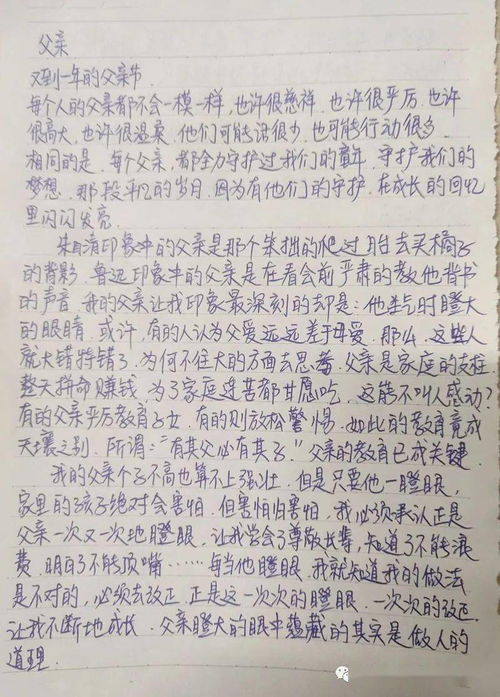 父亲
又到一年的父亲节
每个人的父亲都不会一模一样,也许很慈祥,也许很严厉.也许
很高大,也许很温柔.他们可能话很少,也可能行动很多.
相同的是,每个父亲,都全力守护过我们的童年,守护我们的
梦想.那段平凡的岁月,因为有他们的守护,在成长的回忆
里闪闪发亮.
朱自清印象中的父亲是那个笨拙的爬过月台去买橘子
的背影.鲁迅印象中的父亲是在看会前严肃的教他背书
的声音.我的父亲让我印象最深刻的却是:他生气时瞪大
的眼睛.或许,有的人认为父爱远远差于母爱.那么,这些人
就大错特错了.为何不往大的方面去思考.父亲是家庭的支柱
整天拼命赚钱,为了家庭连苦都甘愿吃,这能不叫人感动?
有的父亲严厉教育子女,有的则放松警惕.如此的教育竟成
天壤之别.所谓:"有其父必有其子"父亲的教育已成关键.
我的父亲个子不高也算不上强壮.但是只要他一瞪眼,
家里的孩子绝对会害怕.但害怕归害怕,我必须承认正是
父亲一次又一次地瞪眼.让我学会了尊敬长辈,知道了不能浪
费.明白了不能顶嘴……每当他瞪眼.我就知道我的做法
是不对的,必须去改正.正是这一次次的瞪眼.一次次的改正.
让我不断地成长.父亲瞪大的眼中蕴藏的其实是做人的
道理.